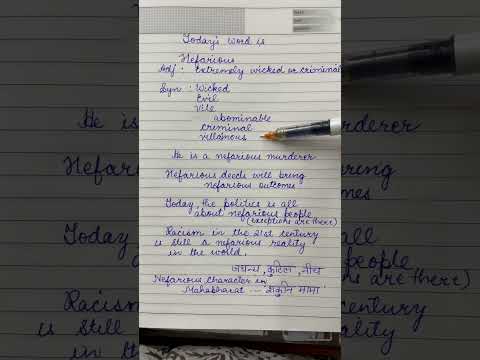 Today's word is
Nefarious
Adj : Extremely wicked or criminal
Syn : Wicked
Evil
Vile
abominable
criminal
villainous
He is a nefarious murderer
Nefarious deeds will bring
nefarious outcomes
Today, the politics is all
about nefarious people
(exceptions are there)
Racism in the 21st century
is still a nefarious reality
in the world.
जघन्य, कुटिल, नीच
Nefarious character in
Mahabharat --- शकुनि मामा